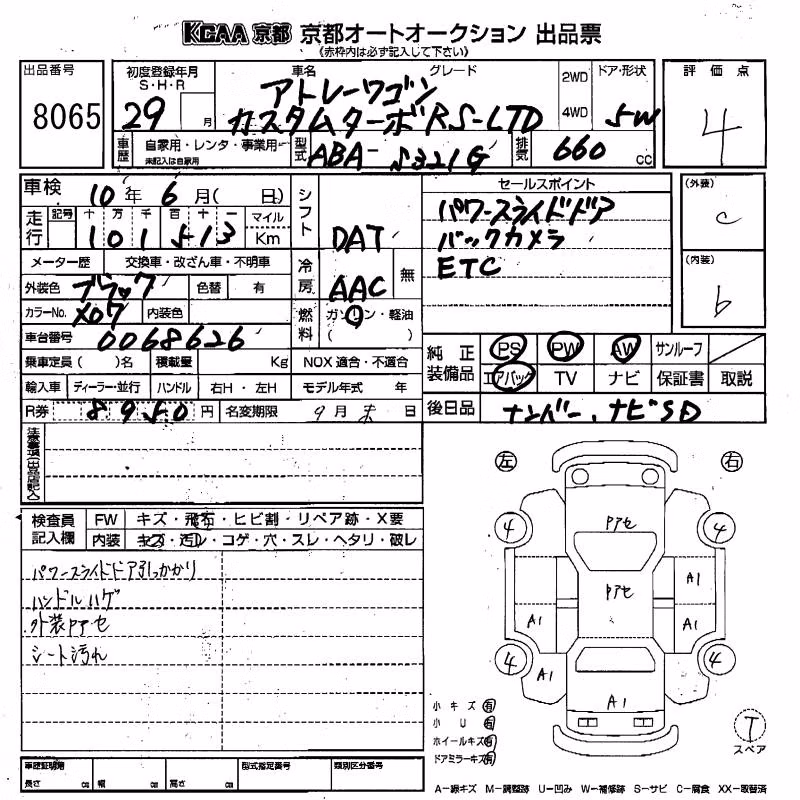 KCAA 京都 京都オートオークション 出品票
(赤枠内は必ず記入して下さい)
出品番号
8065
初度登録年月
S・H・R
29 月
車名 グレード
アトレーワゴン
カスタムターボRS-LTD
2WD
4WD
ドア・形状
5W
評価点
4
車歴
自家用・レンタ・事業用
未記入は自家用
型式
ABA- S321G
排気
660 CC
車検 10年 6月( 日)
走行 記号 十 万 千 百 十 一 マイル
101513 Km
メーター歴 交換車・改ざん車・不明車
外装色 ブラック 色替 有
カラーNo. X07 内装色
車台番号 0068626
乗車定員( )名 積載量 Kg NOX適合・不適合
輸入車 ディーラー・並行 ハンドル 右H・左H モデル年式 年
R券 8950円 名変期限 9月末日
シフト DAT
冷房 AAC 無
燃料 ガソリン・軽油
( )
セールスポイント
パワースライドドア
バックカメラ
ETC
(外装)
c
(内装)
b
純正装備品 PS PW AW サンルーフ
エアバック TV ナビ 保証書 取説
後日品 ナンバー、ナビSD
注意事項(出品店記入)
検査員記入欄 FW キズ・飛石・ヒビ割・リペア跡・X要
内装 キズ・汚レ・コゲ・穴・スレ・ヘタリ・破レ
パワースライドドア引っかかり
ハンドルハゲ
外装Pアセ
シート汚れ
左 右
4 Pアセ 4
Pアセ A1
A1 A1
4 A1 4
A1
小キズ 有
小U 有
ホイールキズ 有
ドアミラーキズ 有
T
スペア
車歴証明書 型式指定番号 類別区分番号
長さ cm 幅 cm 高さ cm
A−線キズ M−調整跡 U−凹み W−補修跡 S−サビ C−腐食 XX−取替済